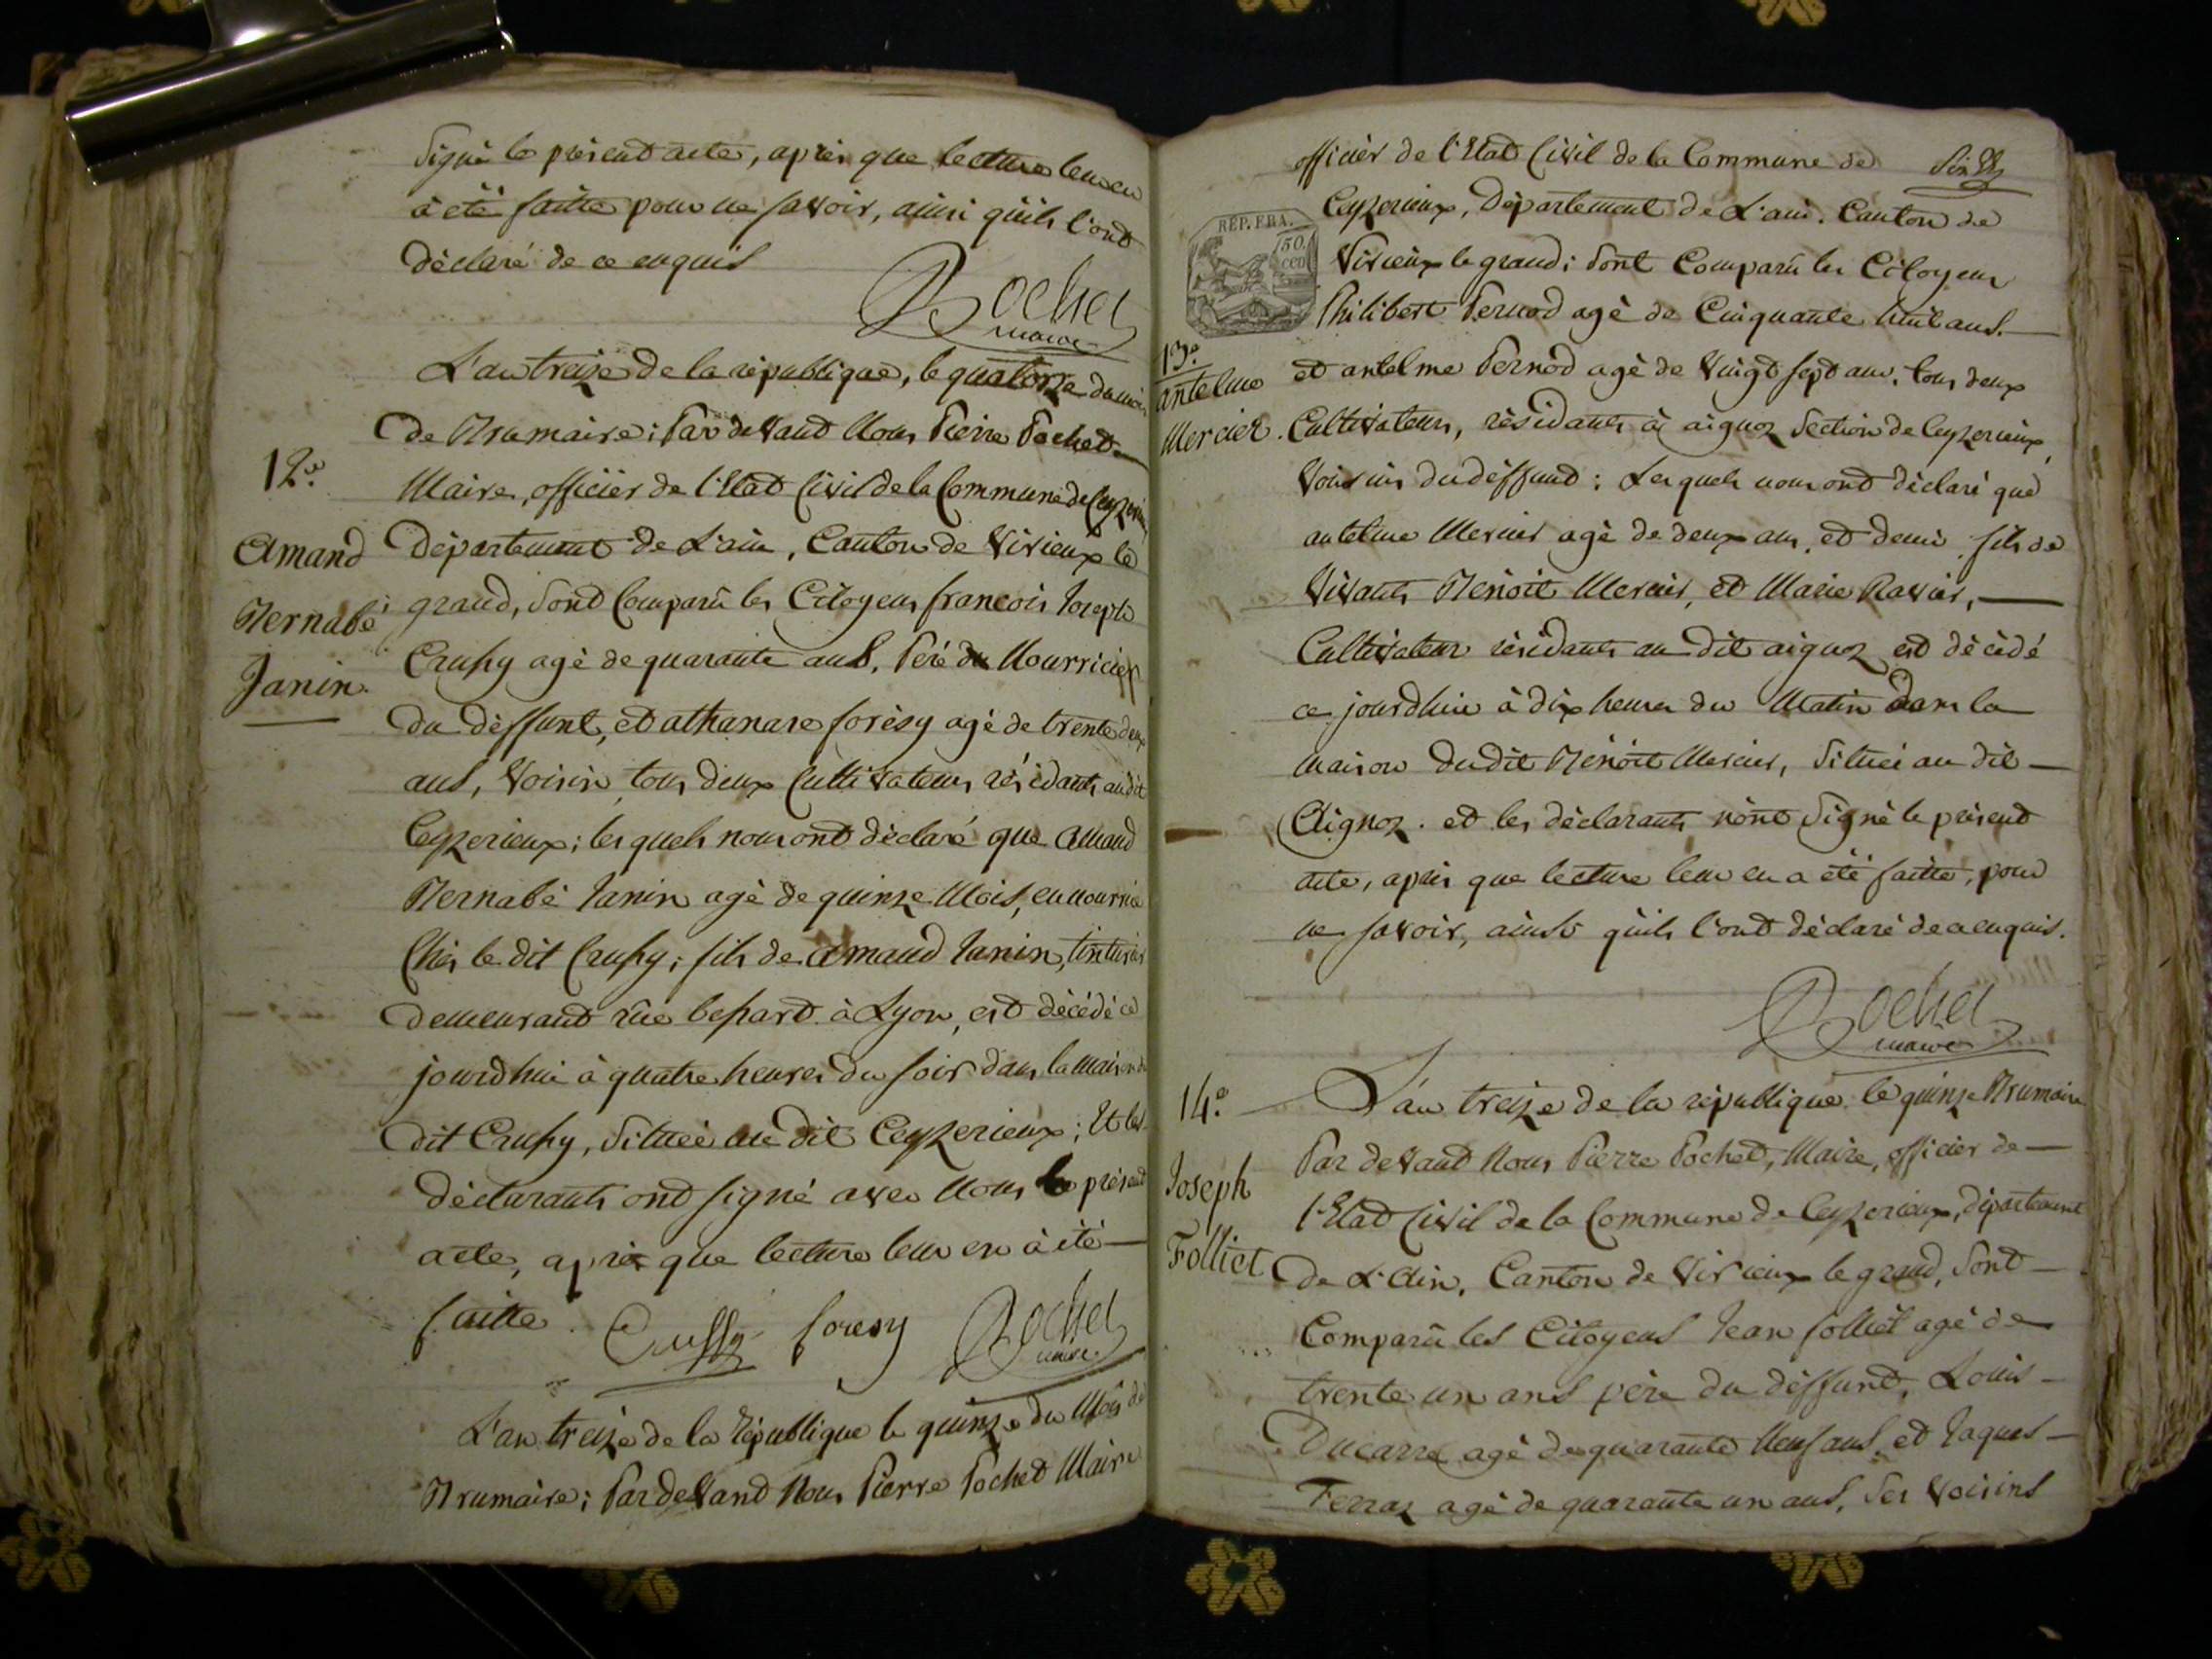 signé le présent acte, après que lecture leur en
à été faitte pour ne savoir, ainsi qu'ils l'ont
déclaré de ce enquis
Pochet
maire
L'an treize de la république, le quatorze du mois
de Brumaire; Par devant Nous Pierre Pochet
12e
Maire, officier de l'Etat Civil de la Commune de Ceyzerieux
Amand
Bernabé
Janin.
Département de L'ain, Canton de Virieux le
grand, Sont Comparû les Citoyens françois Joseph
Crussy agé de quarante ans, Père Nourricier
du deffunt, et athanase forésy agé de trente deux
ans, Voisin, tous deux Cultivateurs résidants au dit
Ceyzerieux; les quels nous ont déclaré que Amand
Bernabé Janin agé de quinze Mois, en nourrice
Chés le dit Crussy; fils de Amand Janin, tinturier
demeurant rüe à Lyon, est décédé ce
jourdhui à quatre heures du soir dans la maison du
dit Crussy, Situeé au dit Ceyzerieux; Et les
déclarants ont signé avec Nous le présent
acte, après que lecture leur en à été
faitte. Crussy foresy Pochet
maire.
L'an treize de la République le quinze du Mois de
Brumaire; Par devant Nous Pierre Pochet Maire
officier de l'Etat Civil de la Commune de
Ceyzerieux, Département de L'ain. Canton de
RÉP. FRA.
50.
CEN
Virieux le grand; Sont Comparû les Citoyens
Philibert Pernod agé de Cinquante huit ans.
13e
antelme
Mercier.
et antelme Pernod agé de Vingt sept ans, tous deux
Cultivateurs, résidants à aignoz Section de Ceyzerieux,
Voisins du deffunt; Les quels nous ont déclaré que
antelme Mercier agé de deux ans, et demi fils de
Vivants Benoit Mercier, et Marie Ravier,
Cultivateur résidants au dit aignoz est décédé
ce jourdhui à dix heures du Matin dans la
maison dudit Bénoit Mercier, Situeé au dit
Aignoz. et les déclarants n'ont Signé le présent
acte, après que lecture leur en a été faitte, pour
ne savoir, ainsi qu'ils l'ont déclaré de ce enquis.
Pochet
maire
14e
Joseph
Folliet
L'an treize de la république le quinze Brumaire
Par devant Nous Pierre Pochet, Maire, officier de
l'Etat Civil de la Commune de Ceyzerieux, département
de L'Ain, Canton de Virieux le grand, Sont
Comparû les Citoyens Jean folliet agé de
trente un ans père du déffunt, Louis
Ducarre agé de quarante Neuf ans, et Jaques
Ferraz agé de quarante un ans, Ses Voisins